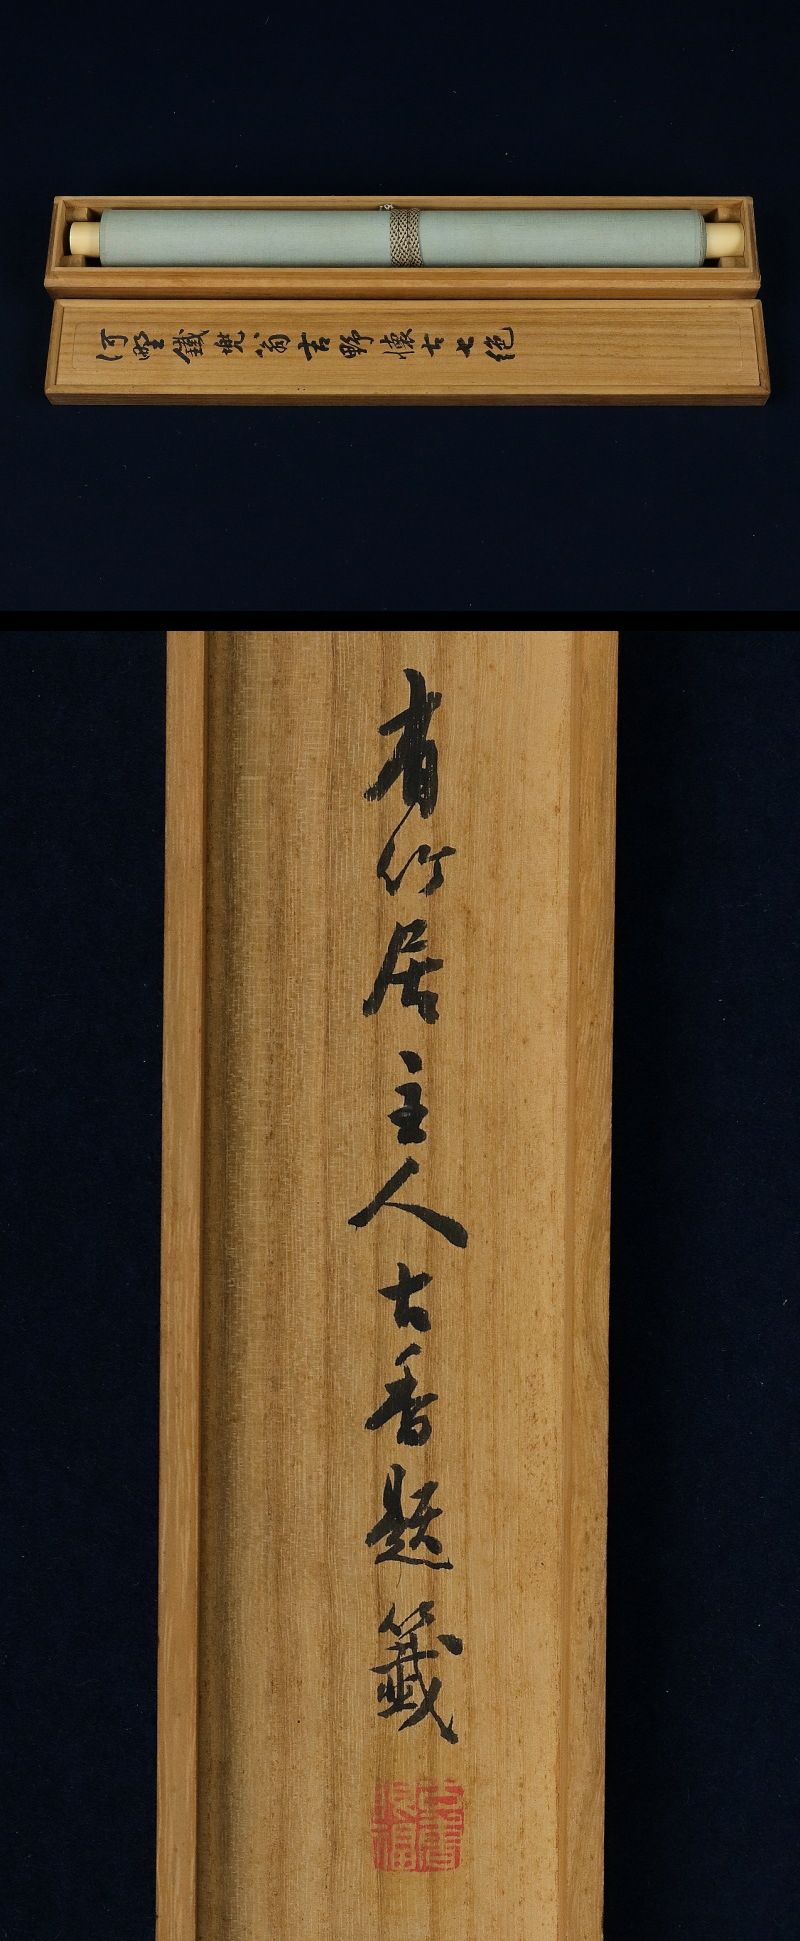 河野鐵兜翁吉野懐古七絶
有竹居主人古香題籤